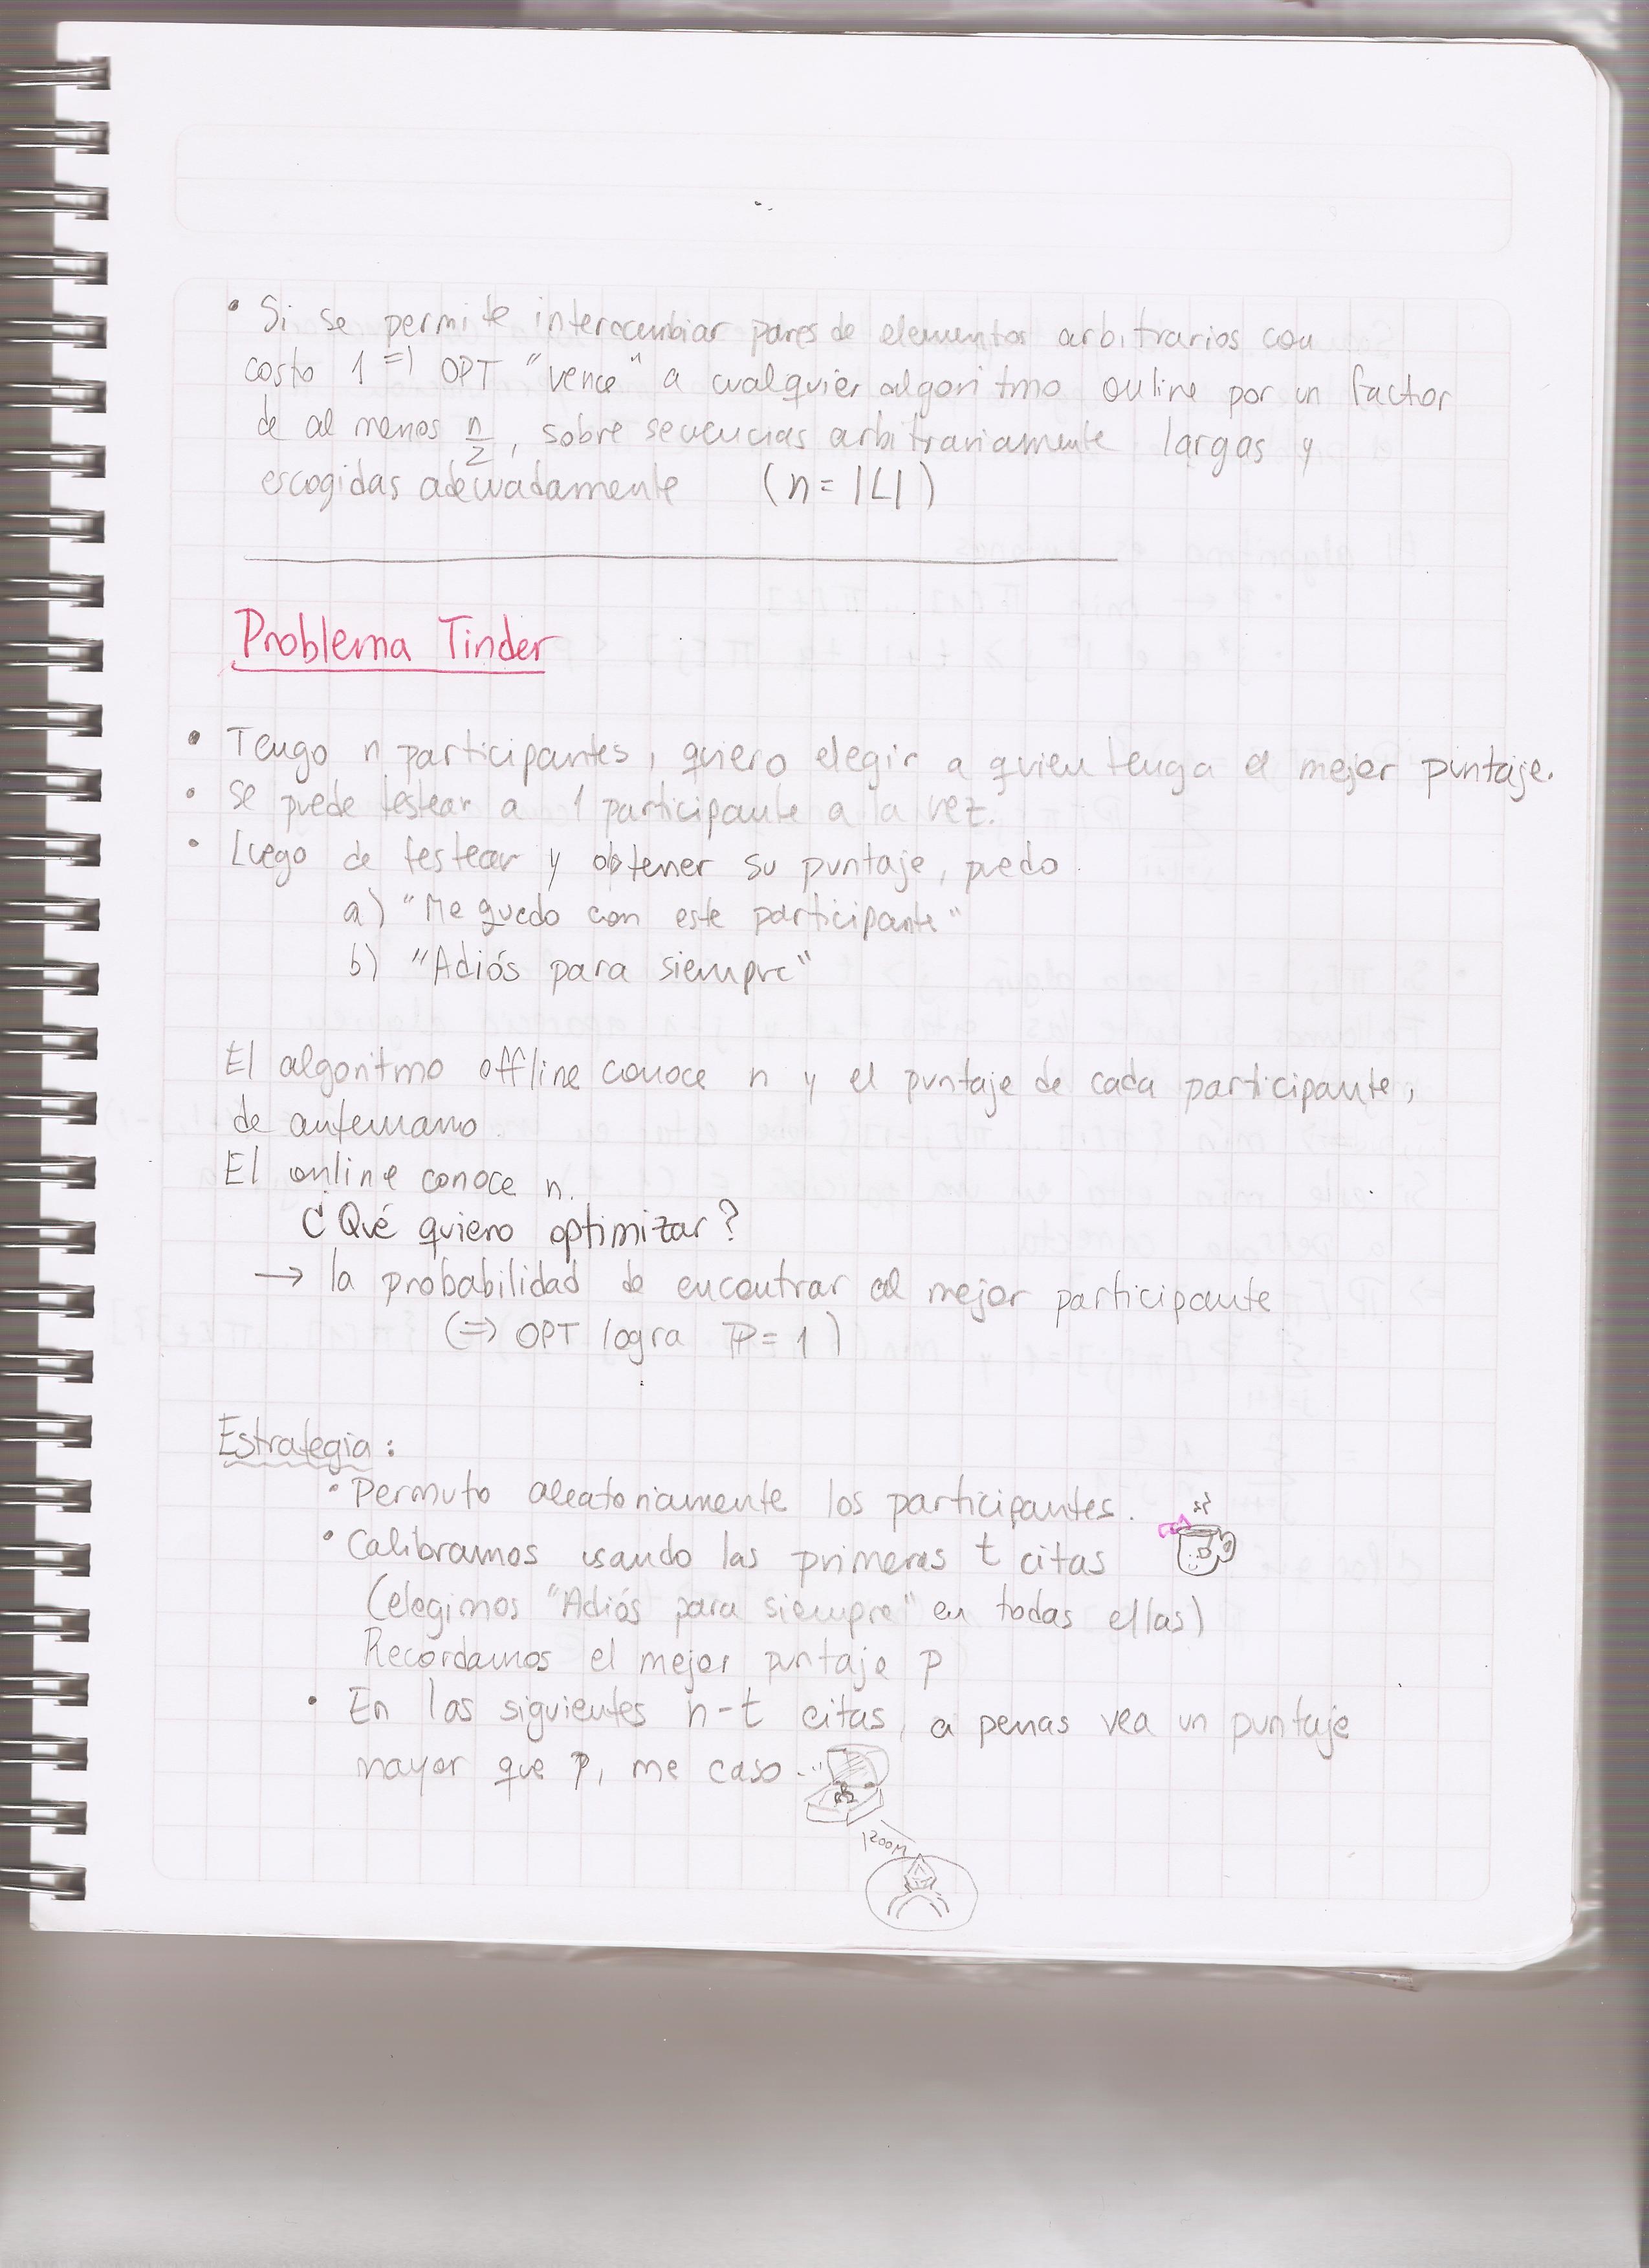 • Si se permite intercambiar pares de elementos arbitrarios con
costo 1 => OPT "vence" a cualquier algoritmo online por un factor
de al menos n/2, sobre secuencias arbitrariamente largas y
escogidas adecuadamente (n = |L|)
Problema Tinder
• Tengo n participantes, quiero elegir a quien tenga el mejor puntaje.
• Se puede testear a 1 participante a la vez.
• Luego de testear y obtener su puntaje, puedo
a) "Me quedo con este participante"
b) "Adiós para siempre"
El algoritmo offline conoce n y el puntaje de cada participante,
de antemano.
El online conoce n.
¿Qué quiero optimizar?
→ la probabilidad de encontrar al mejor participante
(=> OPT logra ℙ = 1)
Estrategia:
• Permuto aleatoriamente los participantes.
• Calibramos usando las primeras t citas
(elegimos "Adiós para siempre" en todas ellas)
Recordamos el mejor puntaje p
• En las siguientes n-t citas, a penas vea un puntaje
mayor que p, me caso...
ZOOM